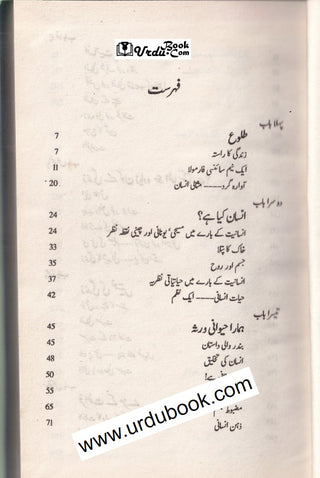 UrduBook.Com
فہرست
پہلا باب
طلوع 7
زندگی کا راستہ 7
ایک نیم سائنسی فارمولا 11
آوارہ گرد۔۔۔۔ مثالی انسان 20
دوسرا باب
انسان کیا ہے؟ 24
انسانیت کے بارے میں مسیحی، یونانی اور چینی نقطہ نظر 24
خاک کا پتلا 33
جسم اور روح 35
انسانیت کے بارے میں حیاتیاتی نظریہ 37
حیات انسانی۔۔۔۔ ایک نظم 42
تیسرا باب
ہمارا حیوانی ورثہ 45
بندر والی داستان 45
انسان کی تخلیق 48
50
55
مضبوط 65
ذہن انسانی 71
www.urdubook.com